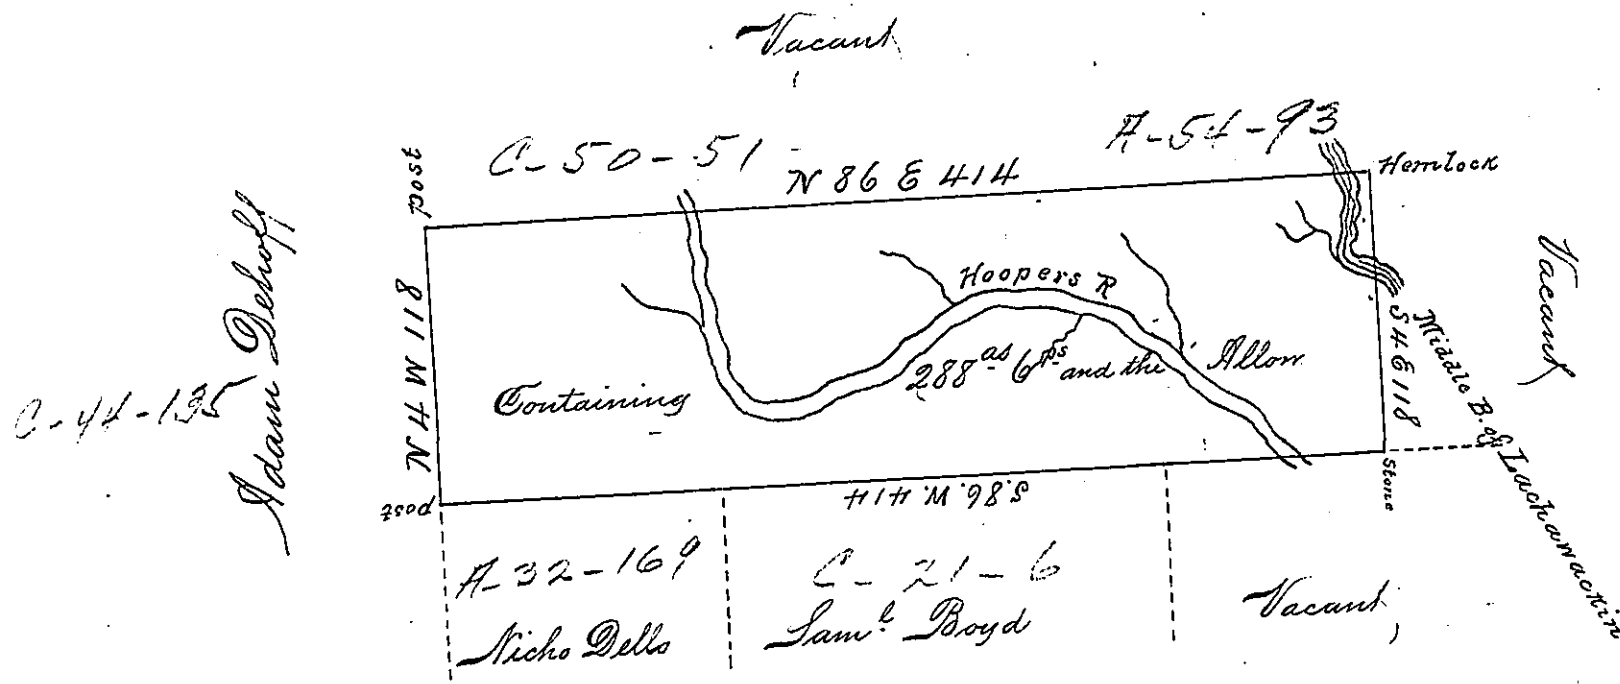 Vacant
C-50-51
A-54-93
N 86 E 414
post
Hemlock
Adam Dehoff
C-44-135
N 4 W 118
Hoopers R
Containing 288 as 6 ps and the Allow
S 4 E 118
Middle B. of Lachawackin
Vacant
post
S. 86. W. 414
Stone
A-32-169
Nicho Dells
C-21-6
Saml Boyd
Vacant